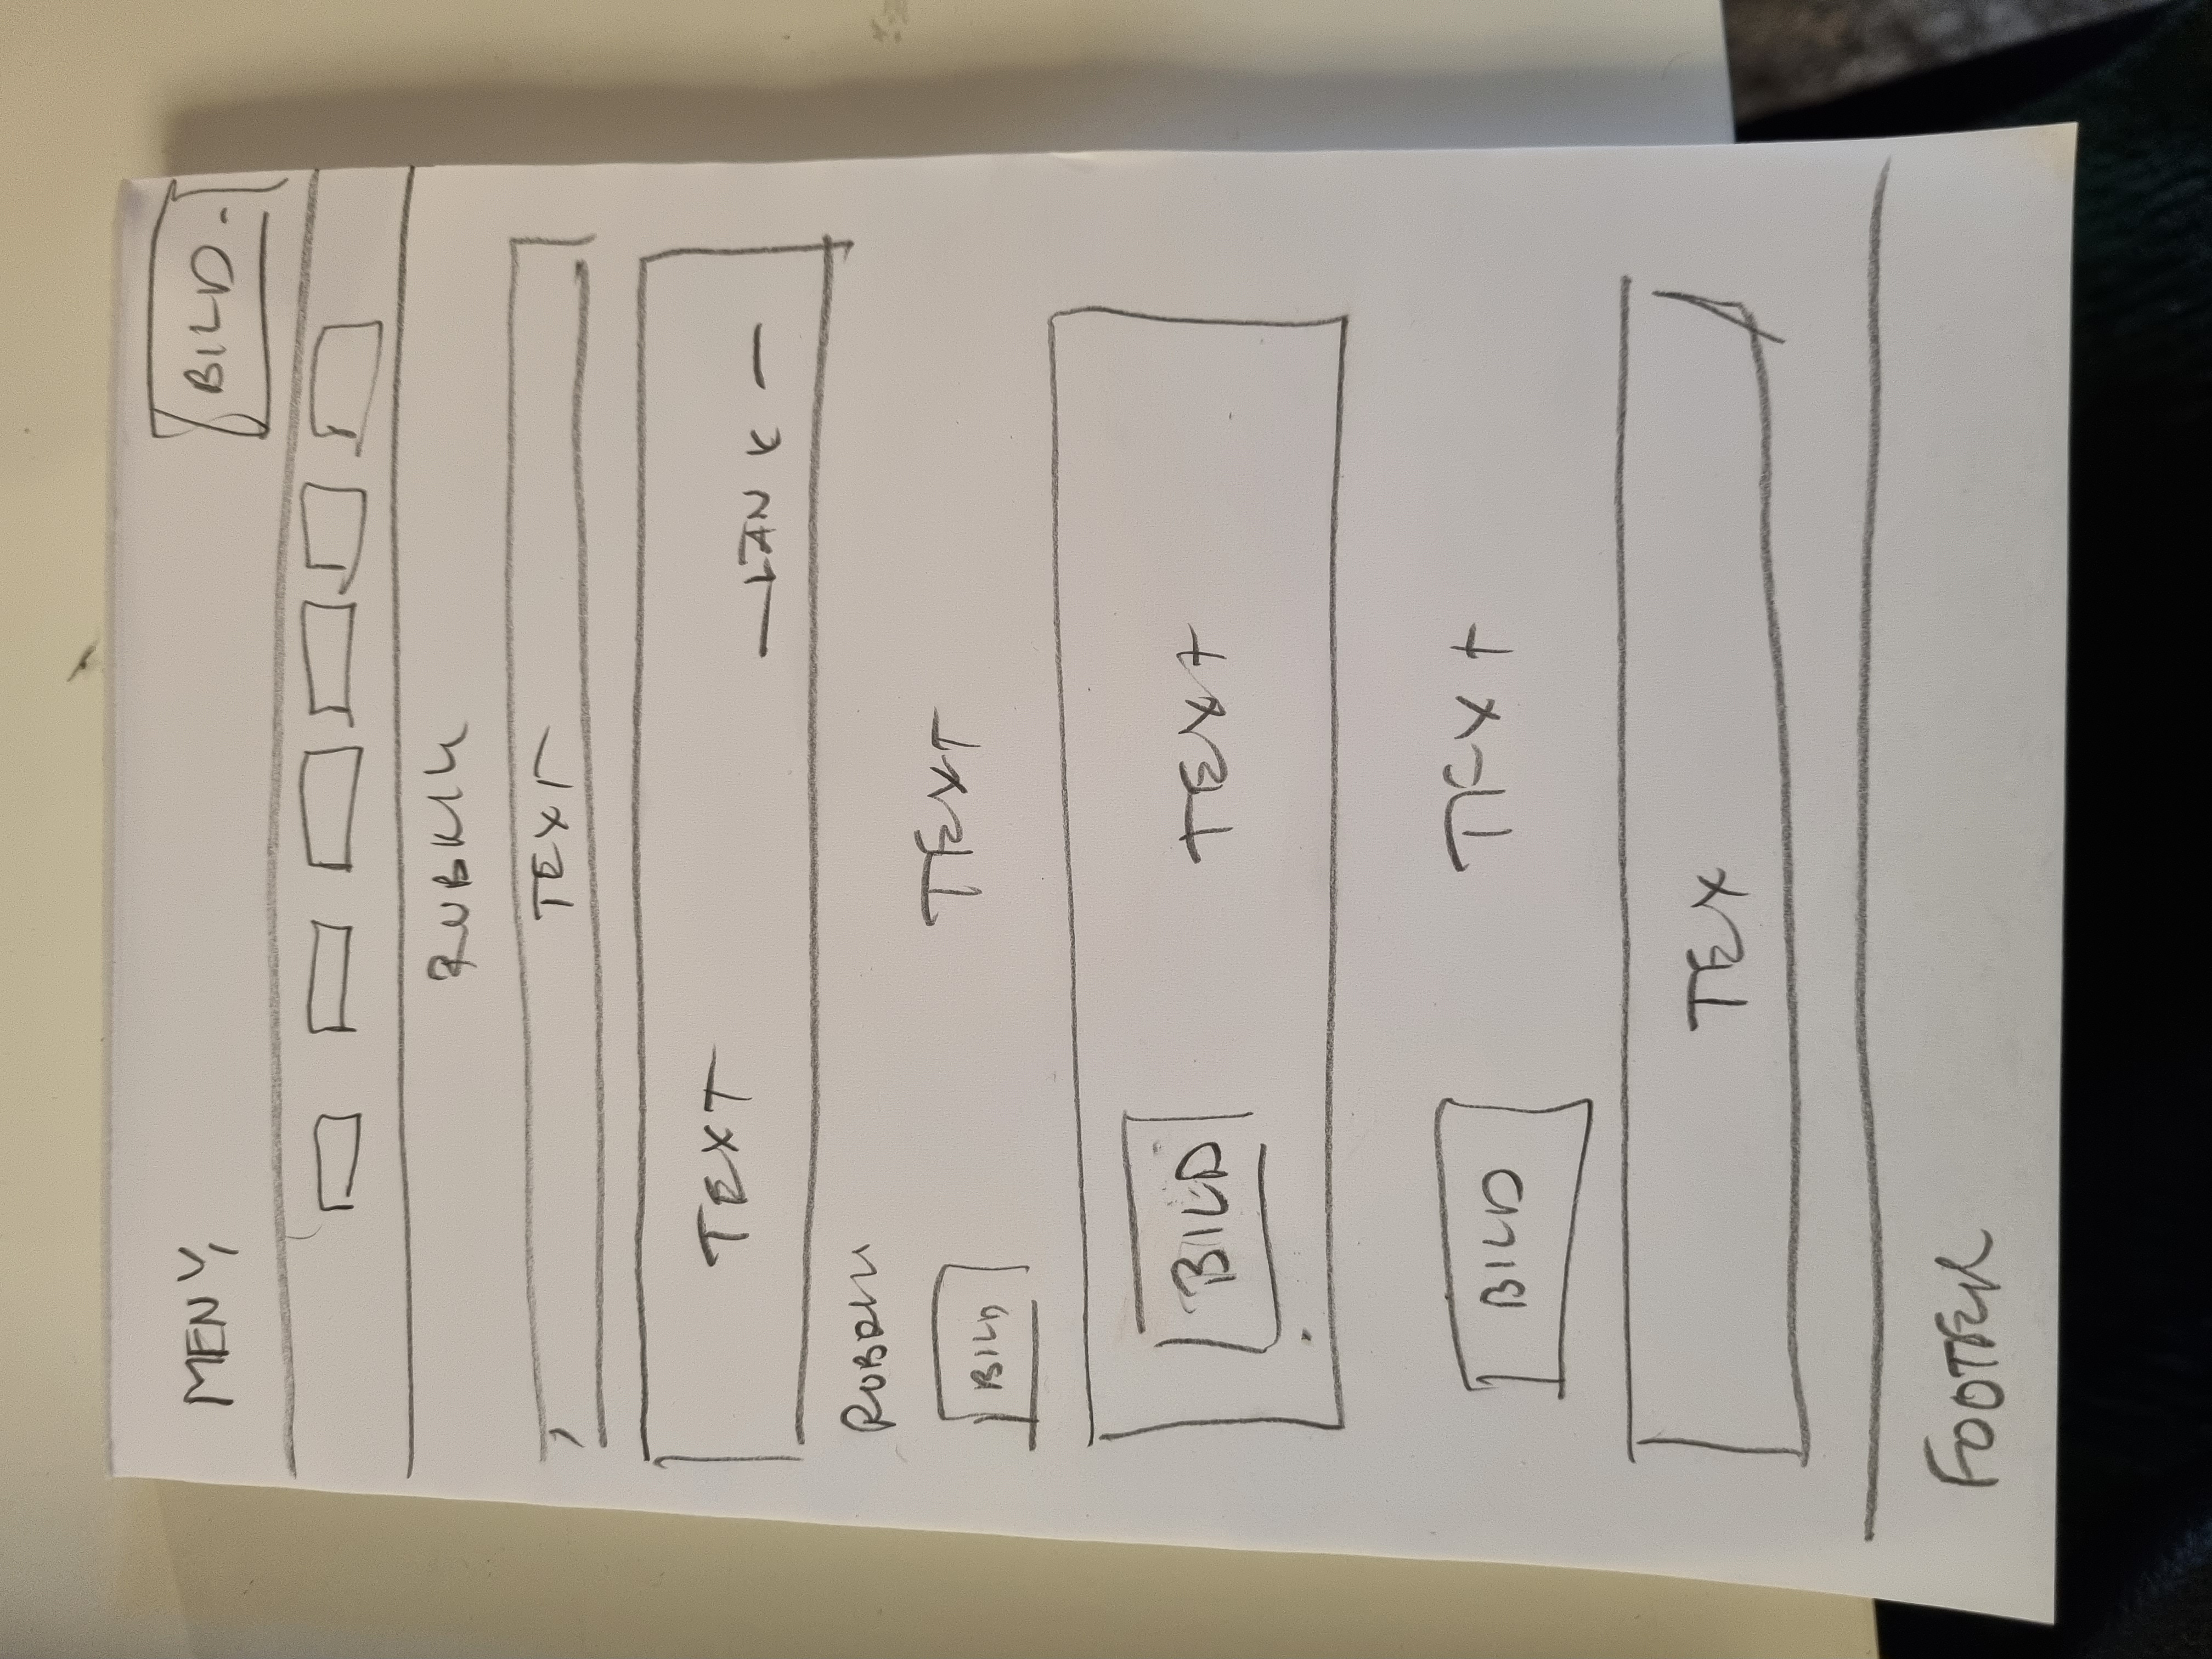 MENY
BILD
RUBRIK
TEXT
TEXT
LÄNK
RUBRIK
TEXT
BILD
BILD
TEXT
BILD
TEXT
TEX
FOOTER